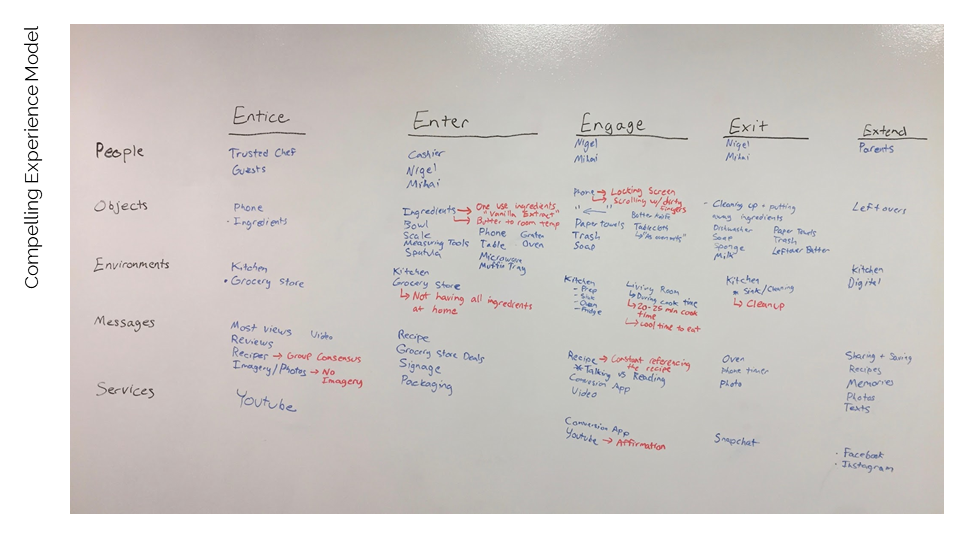 Compelling Experience Model
Entice Enter Engage Exit Extend
People
Trusted Chef
Guests
Cashier
Nigel
Mihai
Nigel
Mihai
Nigel
Mihai
Parents
Objects
Phone
- Ingredients
Ingredients → One use ingredients
"Vanilla Extract"
↳ Butter to room temp
Bowl
Scale
Measuring Tools
Spatula
Phone Grater
Table Oven
Microwave
Muffin Tray
Phone → Locking Screen
↳ Scrolling w/ dirty
fingers
" ← "
Paper towels
Trash
Soap
Butter knife
Tablecloth
- Cleaning up + putting
away ingredients
Dishwasher
Soap
Sponge
Milk
Paper Towels
Trash
Leftover Butter
Leftovers
Environments
Kitchen
• Grocery Store
Kitchen
Grocery Store
↳ Not having all ingredients
at home
Kitchen
- Prep
- Sink
- Oven
- Fridge
Living Room
↳ During cook time
↳ 20-25 min cook
time
↳ cool time to eat
Kitchen
* Sink/Cleaning
↳ Cleanup
Kitchen
Digital
Messages
Most views Video
Reviews
Recipes → Group Consensus
Imagery/Photos → No
Imagery
Recipe
Grocery Store Deals
Signage
Packaging
Recipe → Constant referencing
the recipe
* Talking vs Reading
Conversion App
Video
Oven
phone timer
Photo
Sharing + Saving
Recipes
Memories
Photos
Texts
Services
Youtube
Conversion App
Youtube → Affirmation
Snapchat
• Facebook
• Instagram